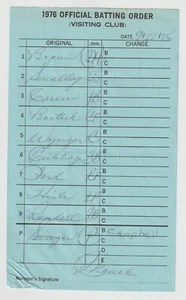 1976 OFFICIAL BATTING ORDER
(VISITING CLUB)
DATE
ORIGINAL POS. CHANGE
1 Braun B
C
2 Smalley B
C
3 Carew B
C
4 Bostock B
C
5 Wynegar B
C
6 Cubbage B
C
7 Ford B
C
8 Hisle B
C
9 Randall B
C
P B Campbell
C
D
E
Manager's Signature
Mauch